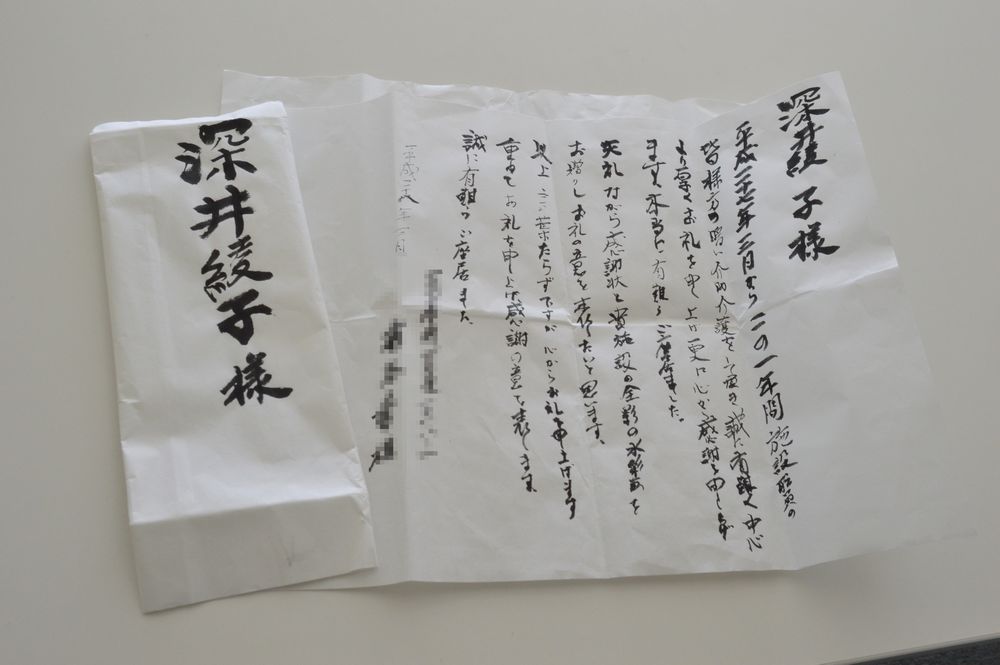 深井綾子様
深井綾子様
平成二十七年二月からこの一年間施設職員の
皆様方の暖い介助介護をして頂き誠に有難く中心
より厚くお礼を申し上げ更に心から感謝を申し上げ
ます。本当に有難うございました。
失礼ながら感謝状と当施設の全影の水彩画を
お贈りしお礼の意を表したいと思います。
以上言葉たらずですが心からお礼を申し上げます
重ねてお礼を申し上げ感謝の意を表します。
誠に有難うご座居ました。
平成二八年二月